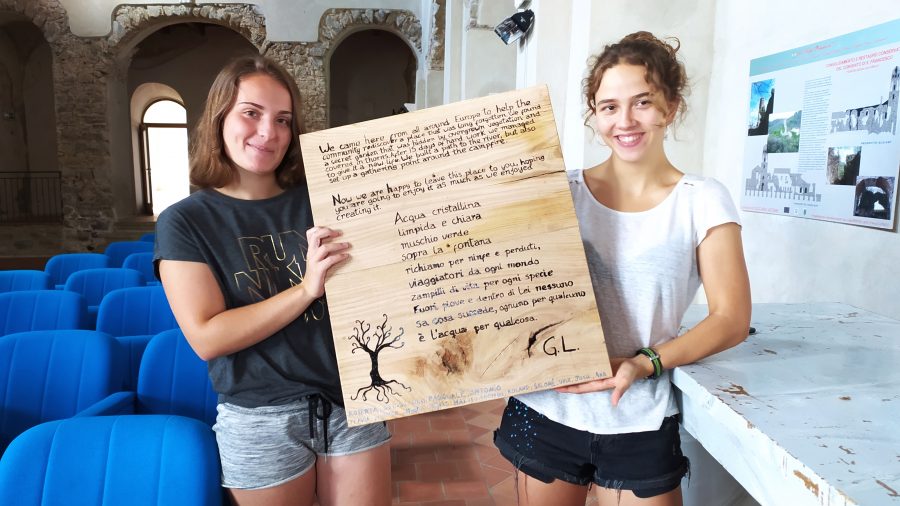 We came here from all around Europe to help the
community rediscover a place that was long forgotten. We found
a secret garden that was hidden by overgrown vegetation and
covered in thorns. After 15 days of hard work we managed
to give it a new life. We built a path to the river, but also
set up a gathering point around the campfire.
Now we are happy to leave this place to you, hoping
you are going to enjoy it as much as we enjoyed
creating it.
Acqua cristallina
limpida e chiara
muschio verde
sopra la fontana
richiamo per ninfe e perduti,
viaggiatori da ogni mondo
zampilli di vita per ogni specie
Fuori piove e dentro di lei nessuno
sa cosa succede, ognuno per qualcuno
è l'acqua per qualcosa.
G.L.
RUN
CONSOLIDAMENTO E RESTAURO CONSERVATIVO
DEL CONVENTO DI S. FRANCESCO